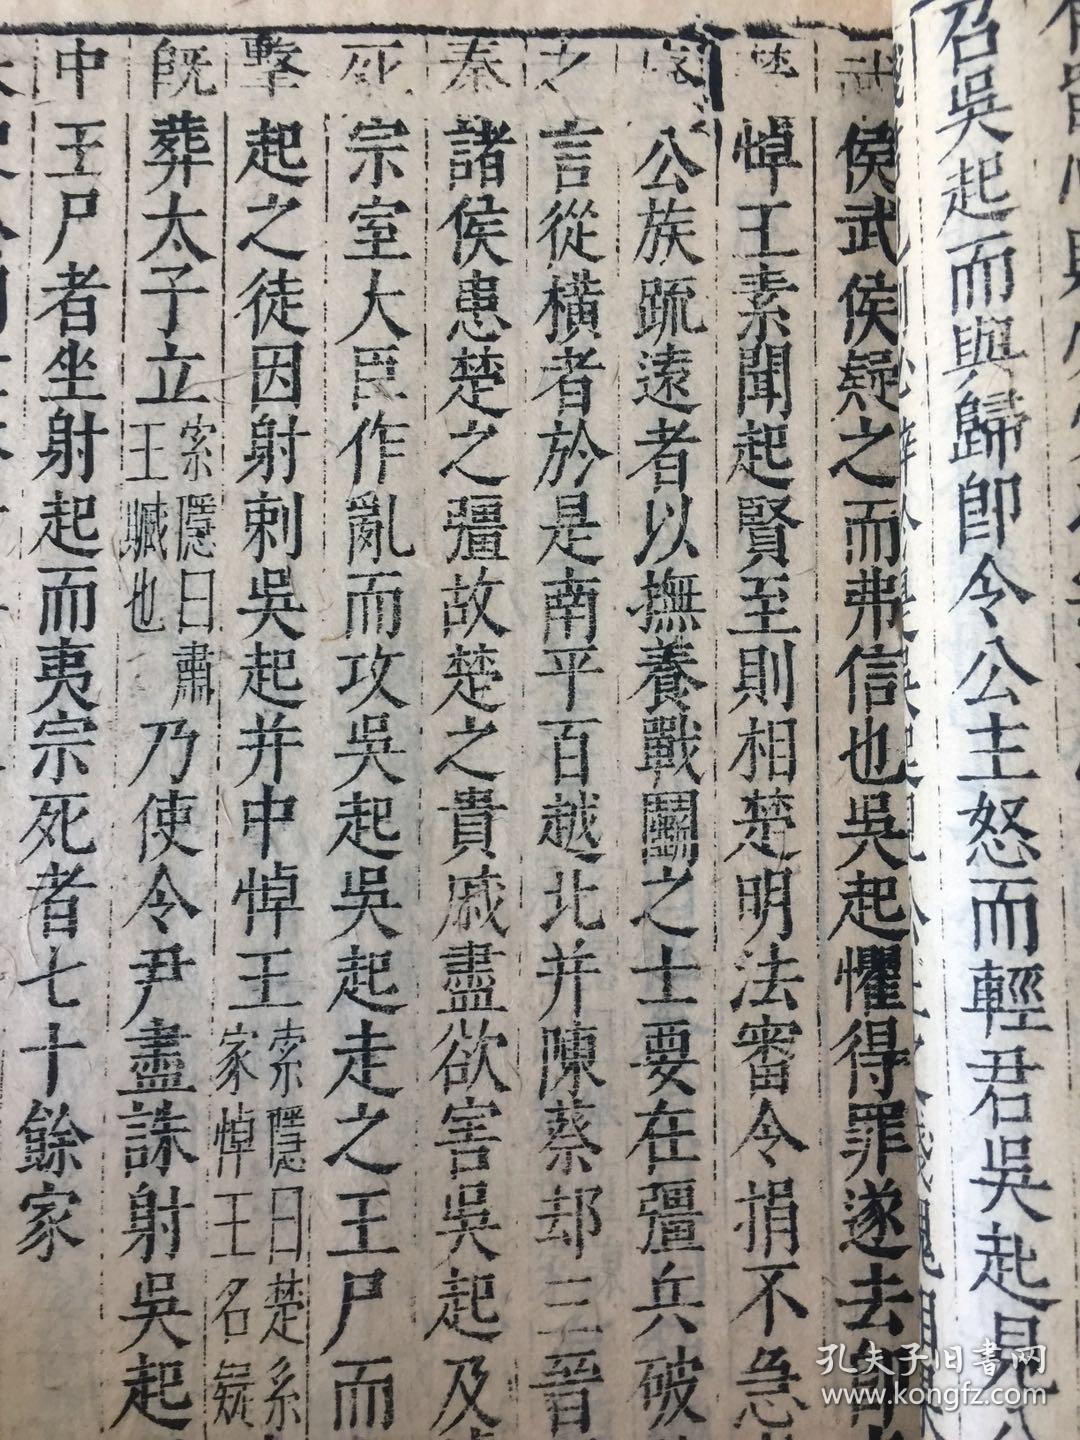 召吳起而與歸卽令公主怒而輕君吳起見公
武侯武侯疑之而弗信也吳起懼得罪遂去卽
楚悼王素聞起賢至則相楚明法審令捐不急
公族疏遠者以撫養戰鬭之士要在彊兵破
之言從橫者於是南平百越北并陳蔡却三晉
秦諸侯患楚之彊故楚之貴戚盡欲害吳起及
死宗室大臣作亂而攻吳起吳起走之王尸而
擊起之徒因射刺吳起并中悼王
索隱曰楚系
家悼王名疑
既葬太子立
索隱曰肅
王臧也
乃使令尹盡誅射吳起
中王尸者坐射起而夷宗死者七十餘家
孔夫子旧书网
www.kongfz.com